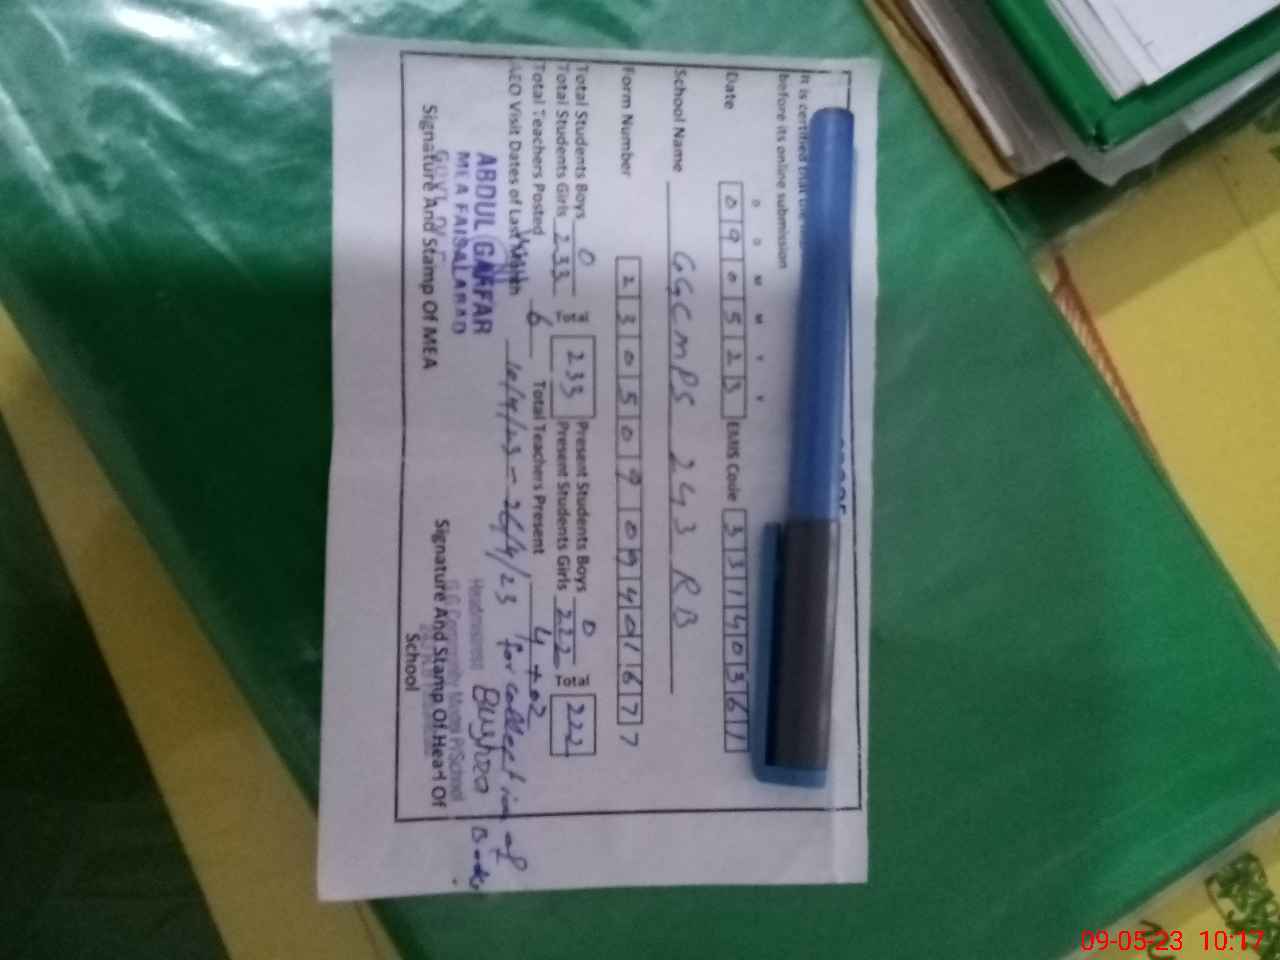 It is certified that the
before its online submission
D D M M Y Y
Date 0 9 0 5 2 3 EMIS Code 3 3 1 4 0 3 6 1
School Name GGCMPS 243 RB
Form Number 2 3 0 5 0 9 0 9 4 0 1 6 7 7
Total Students Boys 0 233 Present Students Boys 0 222
Total Students Girls 233 Present Students Girls 222
Total Teachers Posted 6 Total Teachers Present 4 + 02
AEO Visit Dates of Last Month 26/4/23 for collection of Books
ABDUL GAFFAR
MEA FAISALABAD
Headmistress Bushra
G.G Community Model P/School
Signature And Stamp Of MEA Signature And Stamp Of Heart Of
School
09-05-23 10:17